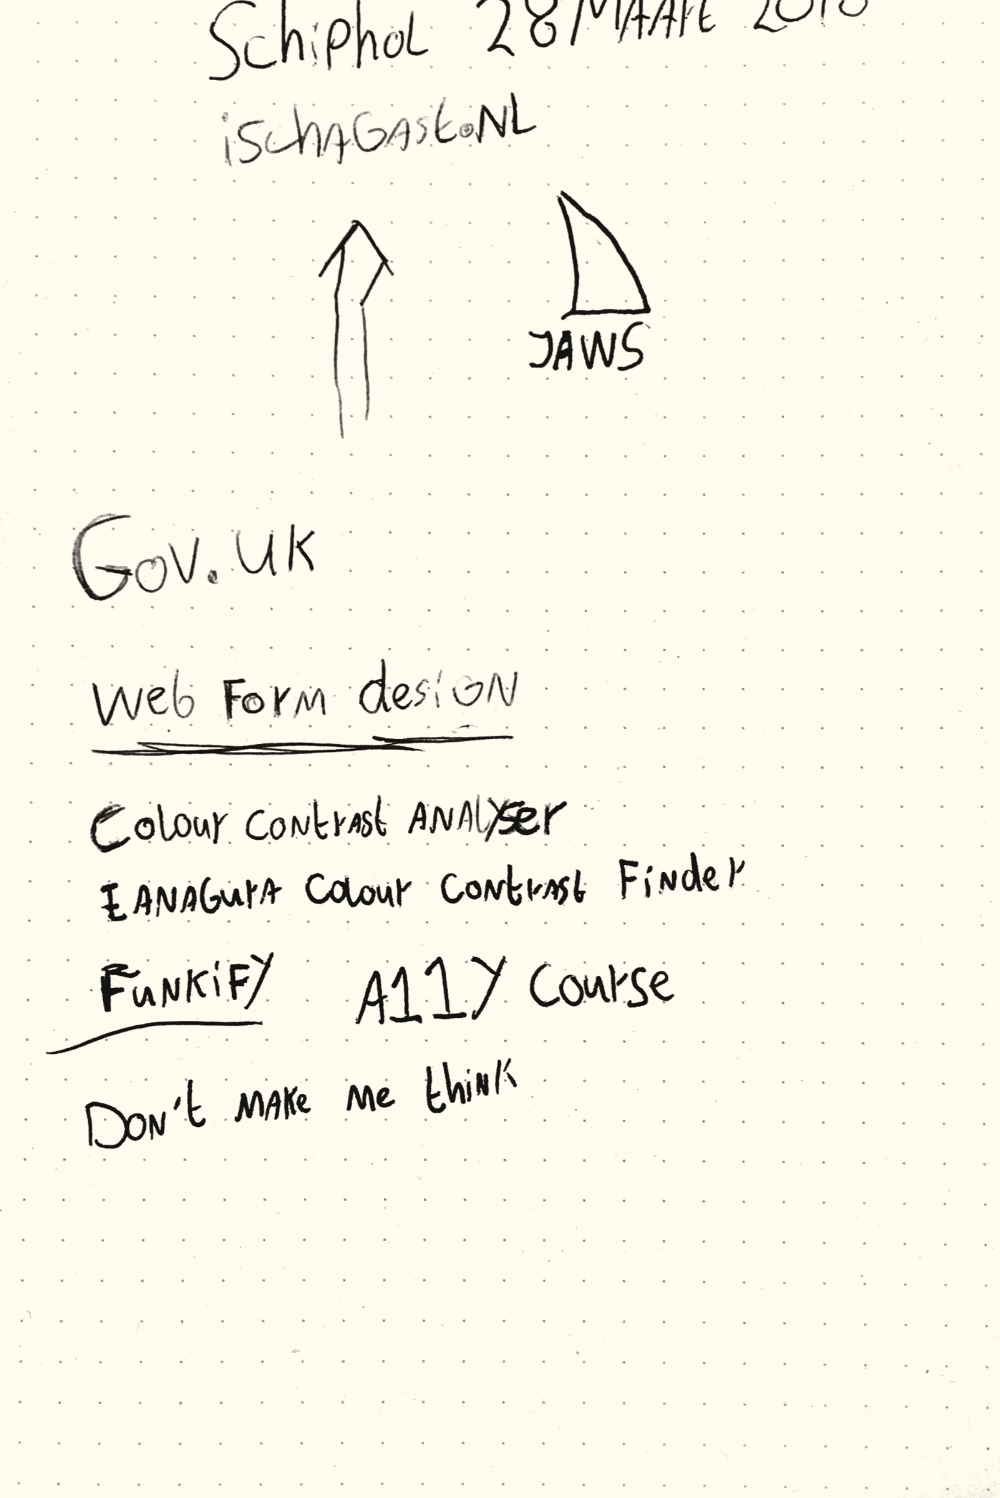 Schiphol 28 MAART 2018
ischAGAst.NL
JAWS
Gov.uk
Web Form design
Colour Contrast ANALyser
TANAGurA Colour Contrast Finder
FuNKiFy A11Y Course
Don't MAKe me think